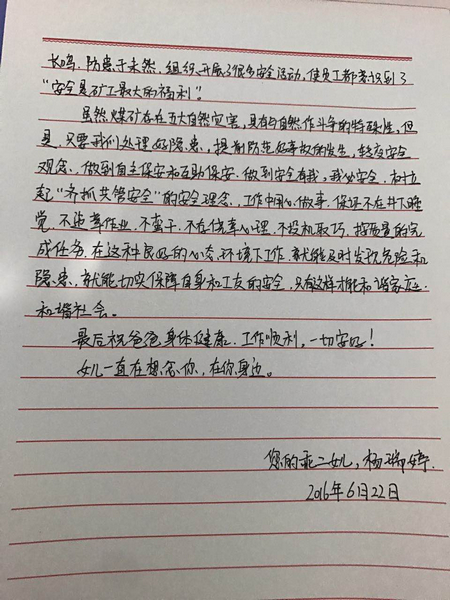 长鸣、防患于未然，组织、开展了很多安全活动，使员工都意识到了
“安全是矿工最大的福利”。
虽然煤矿存在五大自然灾害，具有与自然作斗争的特殊性，但
是，只要我们处理好隐患，提前防范好事故的发生，转变安全
观念，做到自主保安和互助保安，做到安全有我，我必安全，树立
起“齐抓共管安全”的安全理念，工作中用心做事，保证不在井下睡
觉、不违章作业、不蛮干、不存侥幸心理、不投机取巧，按质量的完
成任务，在这种良好的心态、环境下工作，就能及时发现危险和
隐患，就能切实保障自身和工友的安全，只有这样才能和谐家庭、
和谐社会。
最后祝爸爸身体健康，工作顺利，一切安好！
女儿一直在想念你，在你身边。
您的乖二女儿，杨瑞婷
2016年6月22日